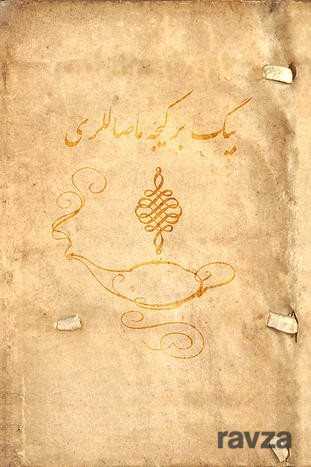 بیڭ بر گیجه ماصاللری
ravza